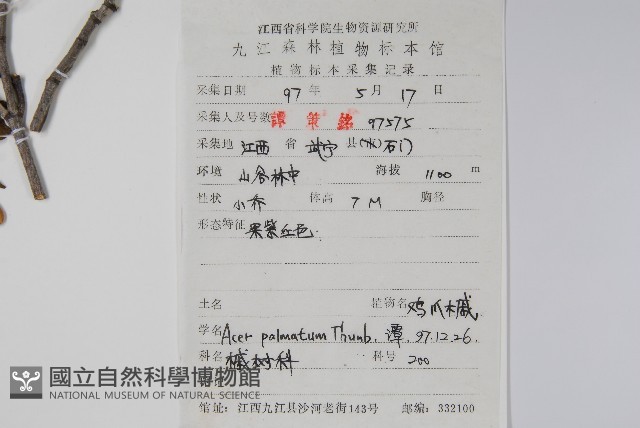 江西省科学院生物资源研究所
九江森林植物标本馆
植物标本采集记录
采集日期 97 年 5 月 17 日
采集人及号数 譚策銘 97575
采集地 江西 省 武宁 县 石门
环境 山谷林中 海拔 1100 m
性状 小乔 体高 7 M 胸径
形态特征 果紫红色
土名 植物名 鸡爪槭
学名 Acer palmatum Thunb. 譚 97.12.26.
科名 槭树科 科号 200
國立自然科學博物館
NATIONAL MUSEUM OF NATURAL SCIENCE
馆址:江西九江县沙河老街143号 邮编:332100